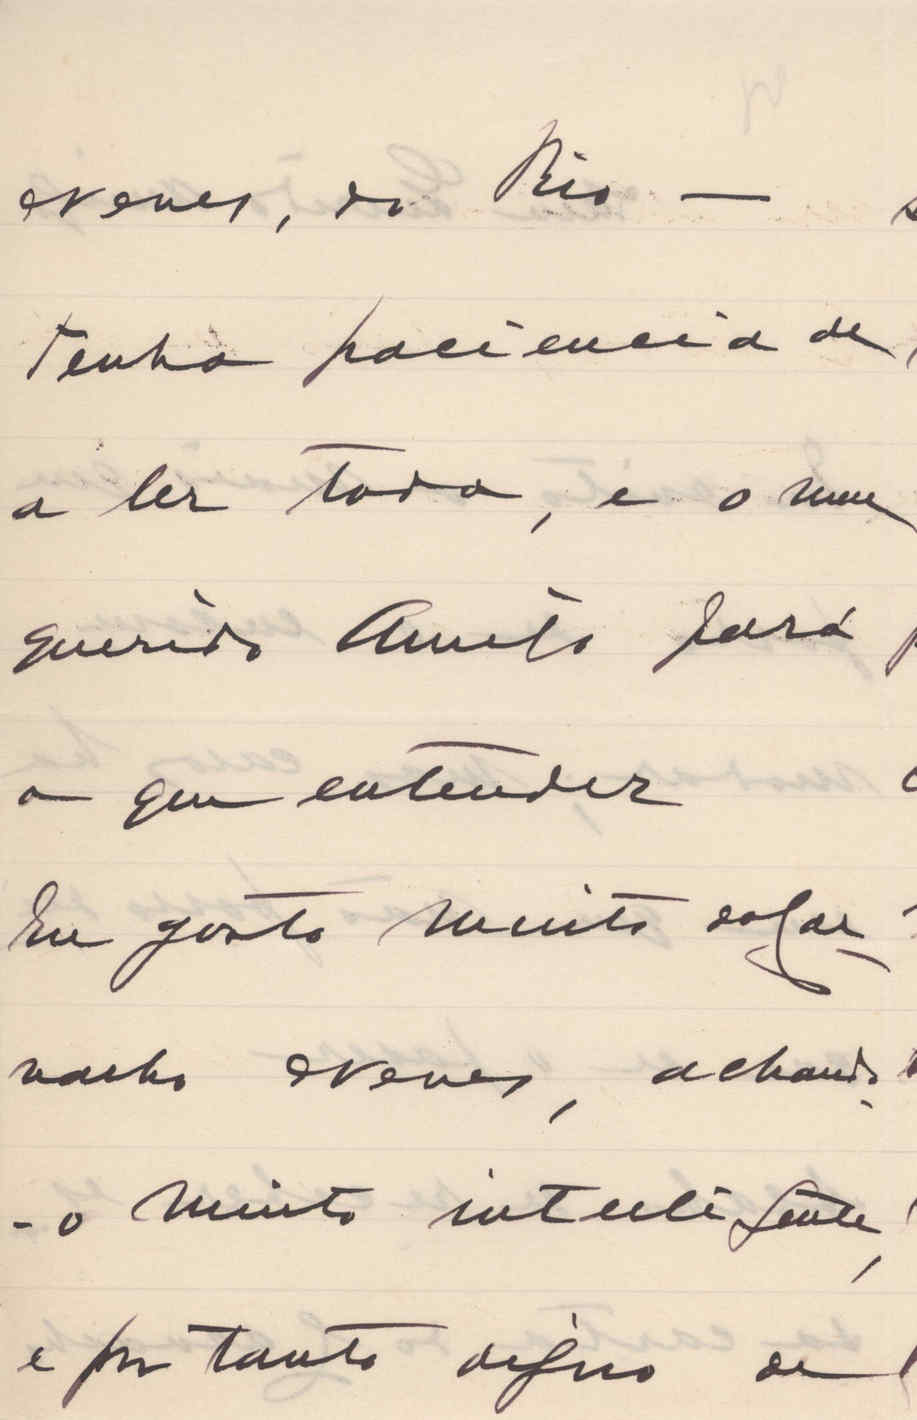 Esteves, do Rio —
Tenha paciencia de
a ler toda, e o meu
querido Amigo fará
o que entender
Eu gosto muito do Gar-
nacho Esteves, achando
-o muito intelligente,
e por tanto digno de